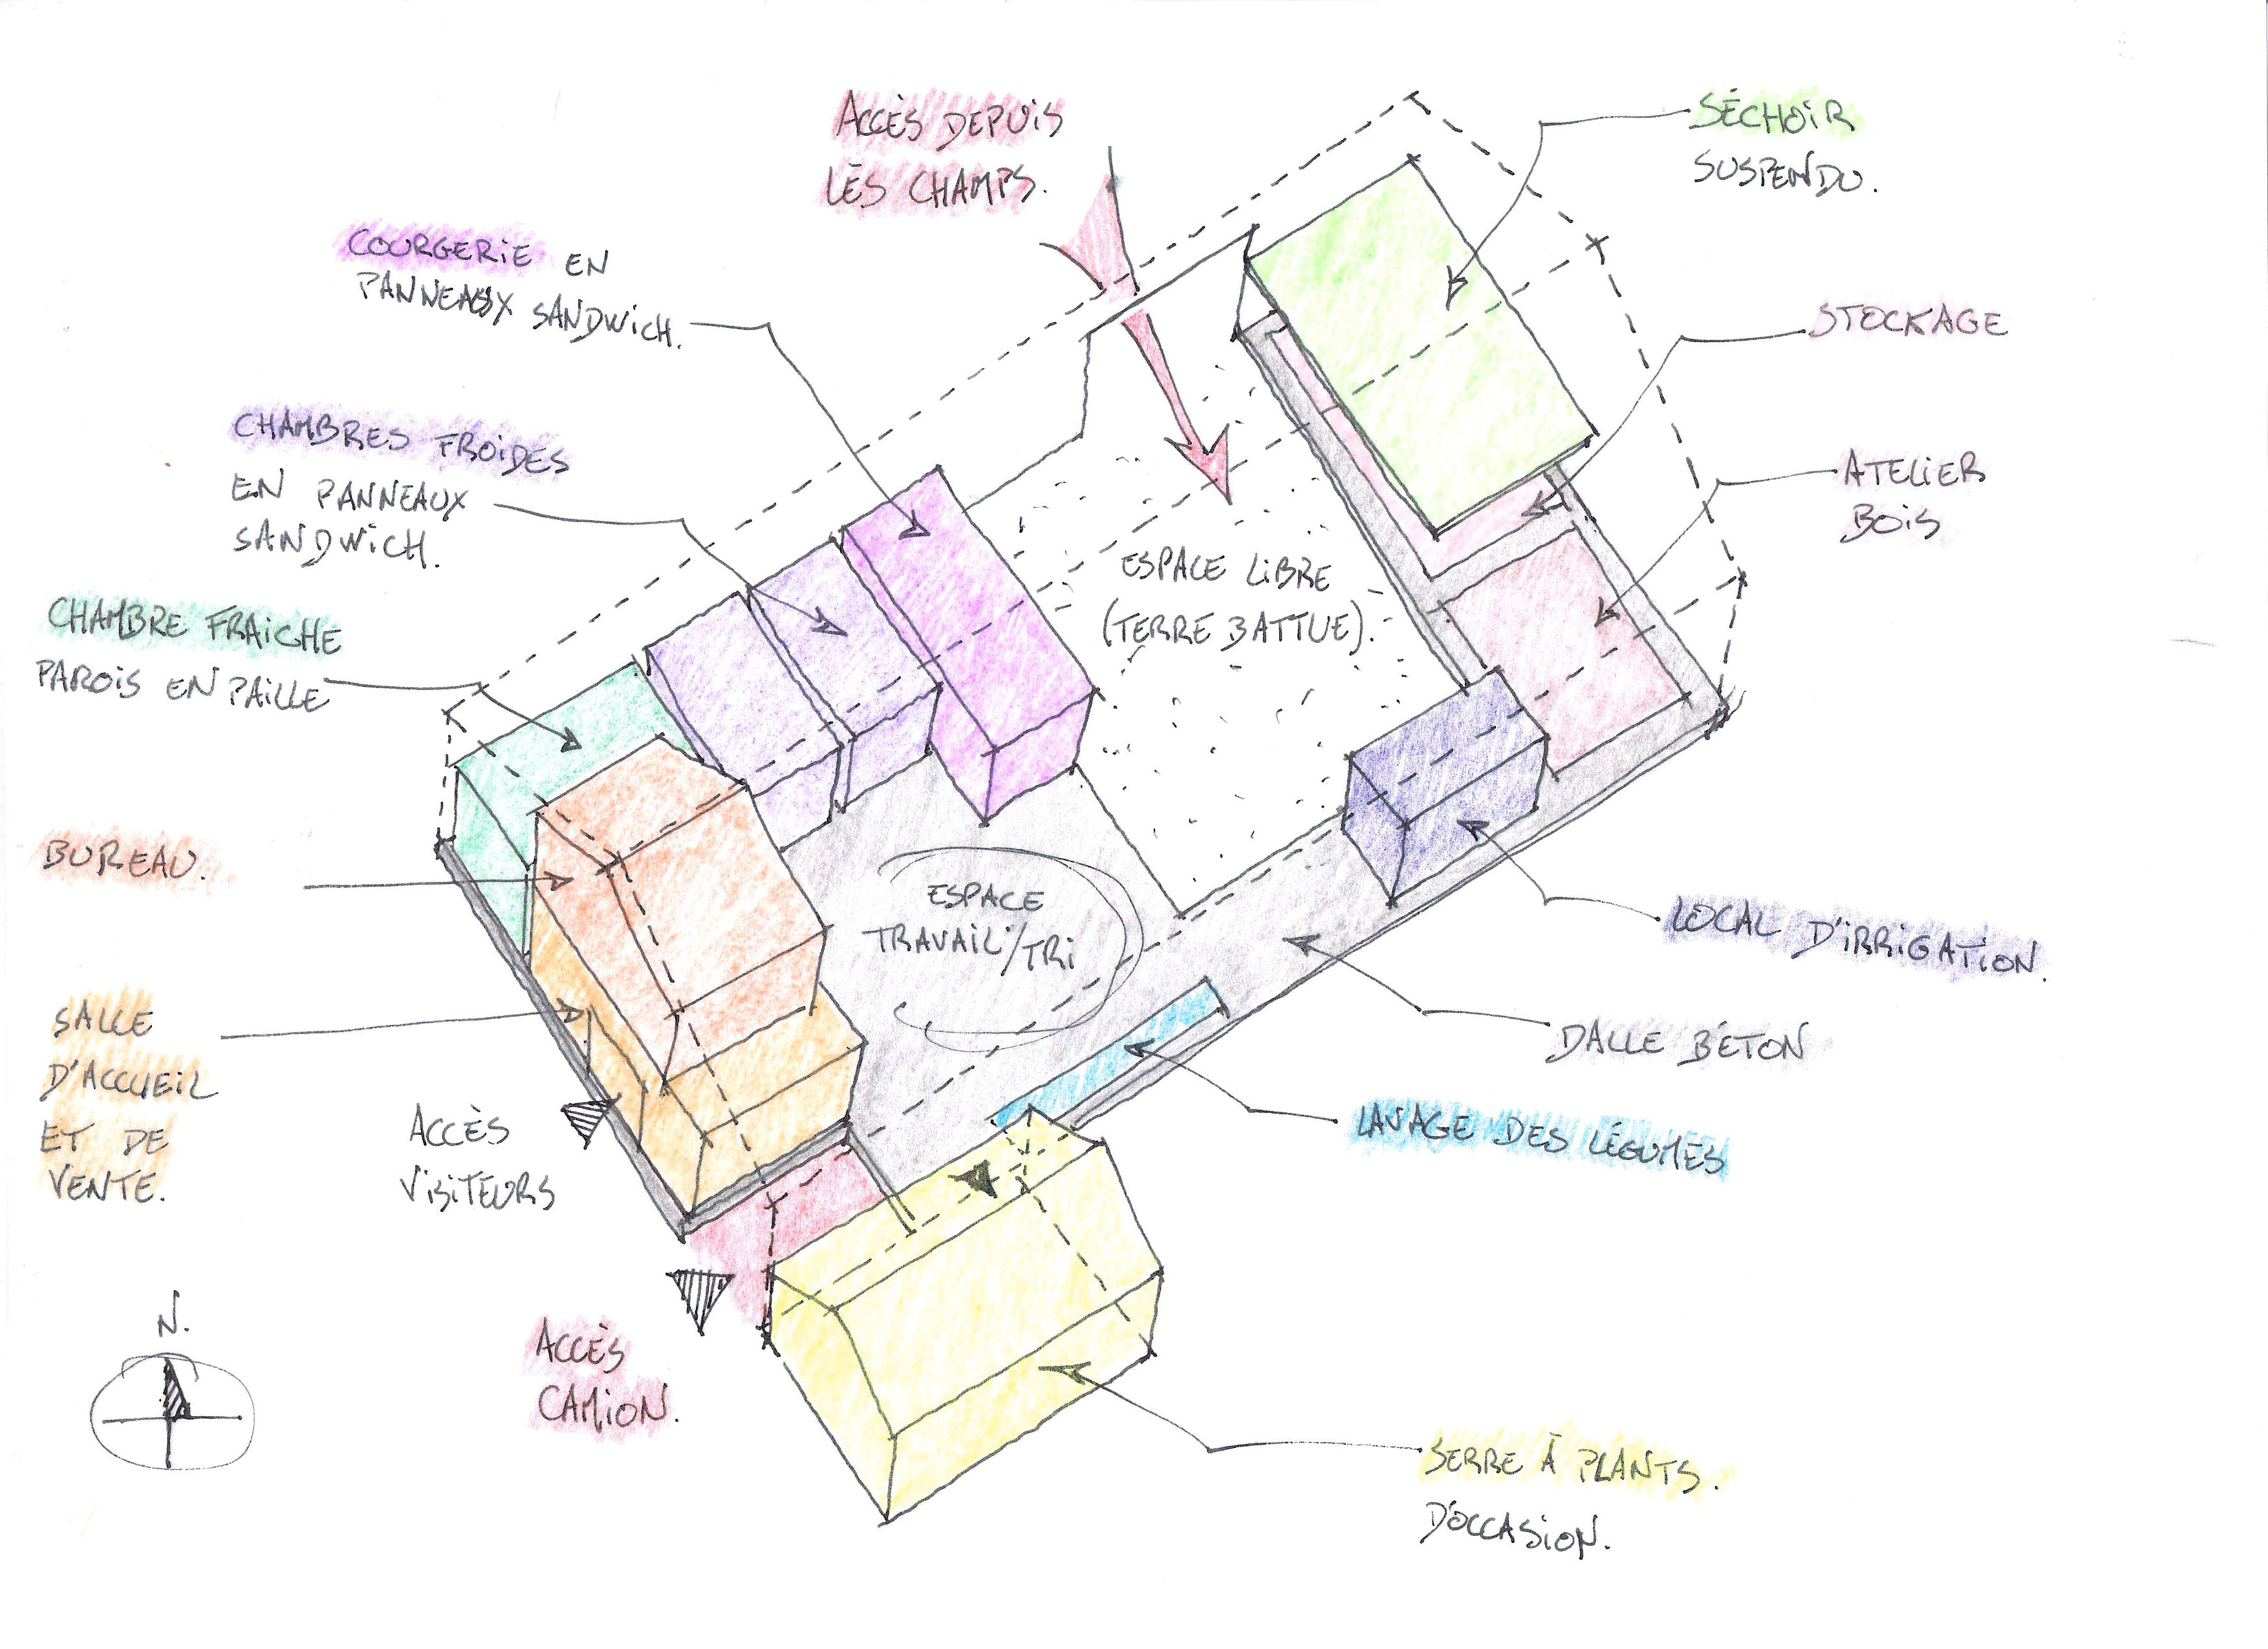 ACCÈS DEPUIS
LES CHAMPS.
SÉCHOIR
SUSPENDU.
COURGERIE EN
PANNEAUX SANDWICH.
STOCKAGE
CHAMBRES FROIDES
EN PANNEAUX
SANDWICH.
ATELIER
BOIS
ESPACE LIBRE
(TERRE BATTUE).
CHAMBRE FRAICHE
PAROIS EN PAILLE
BUREAU.
ESPACE
TRAVAIL/TRI
LOCAL D'IRRIGATION.
SALLE
D'ACCUEIL
ET DE
VENTE.
DALLE BÉTON
ACCÈS
VISITEURS
LAVAGE DES LÉGUMES
N.
ACCÈS
CAMION.
SERRE À PLANTS.
D'OCCASION.